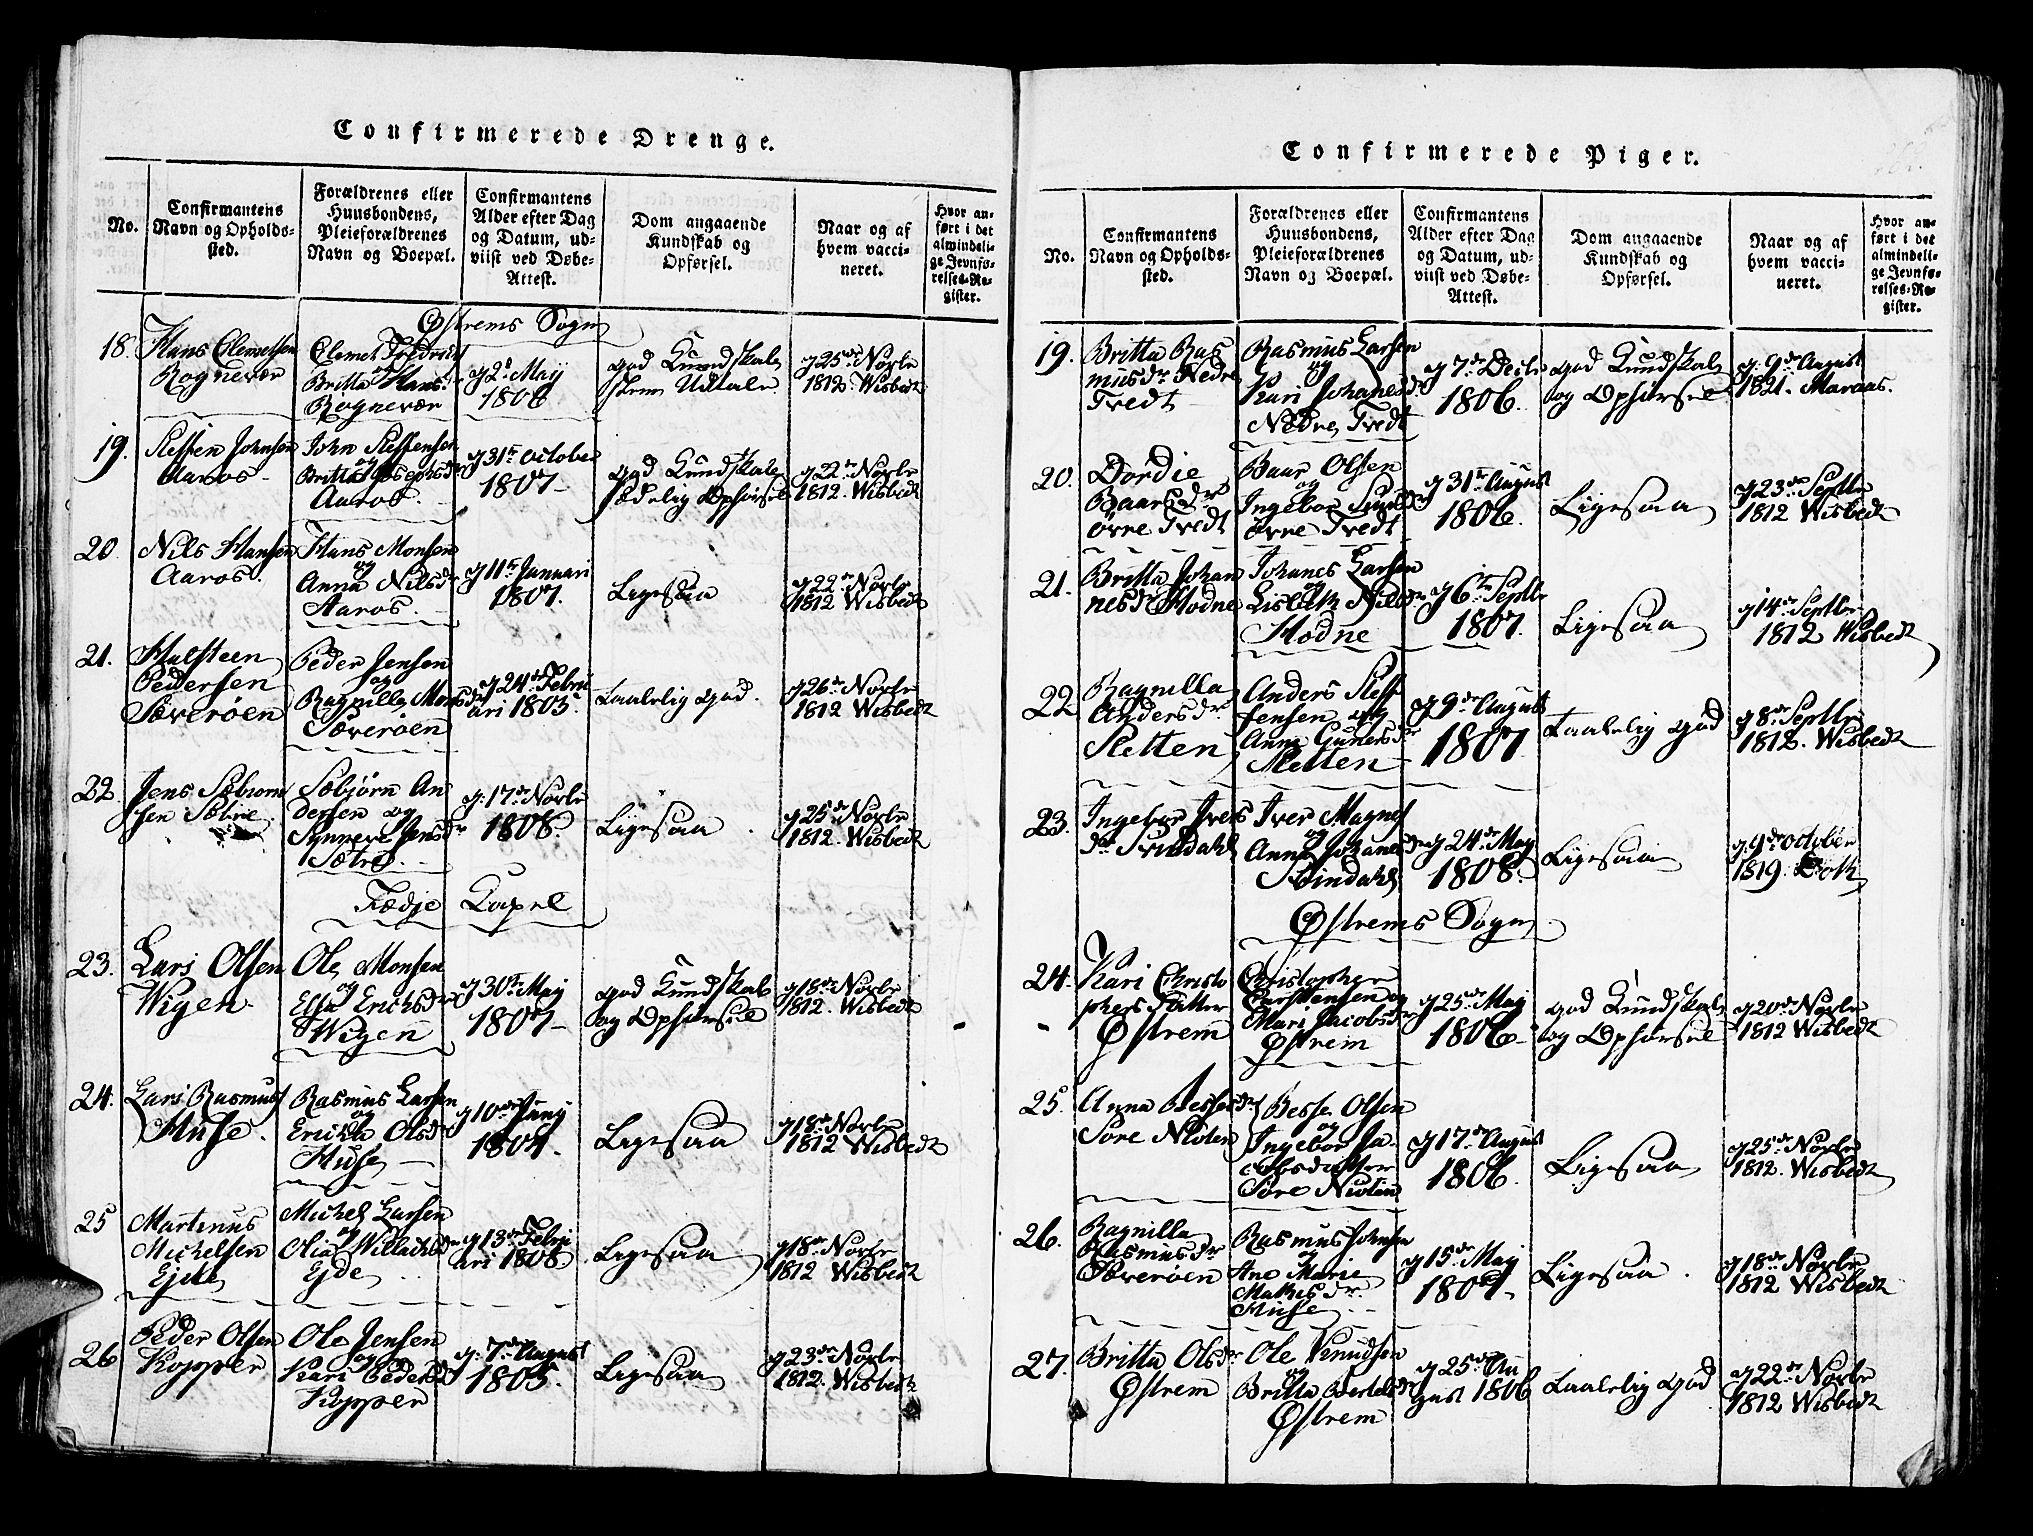 Confirmerede Drenge.
No.
Confirmantens
Navn og Opholds-
sted.
Forældrenes eller
Huusbondens,
Pleieforældrenes
Navn og Boepæl.
Confirmantens
Alder efter Dag
og Datum, ud-
viist ved Døbe-
Attest.
Dom angaaende
Kundskab og
Opførsel.
Naar og af
hvem vacci-
neret.
Hvor an-
ført i det
almindeli-
ge Jevnfø-
relses-Re-
gister.
Østrems Sogn
18.
Hans Clemetsen
Rognevær
Clemet
og
Britta Hans
Rognevær
g 2d Maij
1806
god Kundskab
Udtale
g 25de Novbr
1812. Wisbedt
19.
Steffen Johnsen
Aaros
John Steffensen
og
Britta
Aaros
g 31te October
1807
god Kundskab
Sædelig Opførsel
g 22de Novbr
1812. Wisbedt
20.
Nils Hansen
Aaros.
Hans Monsen
og
Anna Nilsdr
Aaros.
g 11te Januari
1807.
Ligesaa
g 22de Novbr
1812 Wisbedt
21.
Halsteen
Pedersen
Sæverøen
Peder Jensen
og
Ragnilla Monsdr
Sæverøen
g 24de Febru
ari 1805.
Taalelig god.
g 26de Novbr
1812 Wisbedt
22
Jens Sæbiørn
sen Sætre
Sæbjørn An
dersen og
Synneve Jensdr
Sætre
g. 17de Novbr
1808.
Ligesaa
g 25de Novbr
1812. Wisbedt
Fædje Capel
23.
Lars Olsen
Wigen
Ole Monsen
og
Elsa Erichsdr
Wigen
g 30te Maij
1807
god Kundskab
og Opførsel
g 18de Novbr
1812. Wisbedt
24.
Lars Rasmuss
Huse.
Rasmus Larsen
og
Erichta Olsdr
Huse
g 10de Junij
1804.
Ligesaa
g 18de Novbr
1812 Wisbedt
25
Martinus
Michelsen
Ejde
Michel Larsen
og
Olia Willachsdr
Ejde
g 13de Febru
ari 1808.
Ligesaa
g 18de Novbr
1812 Wisbedt
26
Peder Olsen
Kopper
Ole Jensen
og
Kari Pedersdr
Kopper
g. 7de August
1805.
Ligesaa
g 23de Novbr
1812. Wisbedt
Confirmerede Piger.
No.
Confirmantens
Navn og Opholds-
sted.
Forældrenes eller
Huusbondens,
Pleieforældrenes
Navn og Boepæl.
Confirmantens
Alder efter Dag
og Datum, ud-
viist ved Døbe-
Attest.
Dom angaaende
Kundskab og
Opførsel.
Naar og af
hvem vacci-
neret.
Hvor an-
ført i det
almindeli-
ge Jevnfø-
relses-Re-
gister.
19.
Britta Ras
musdr Nedre
Tvedt
Rasmus Larsen
og
Kari Johanesdr
Nedre Tvedt
g 7de Decbr
1806.
god Kundskab
og Opførsel
g. 9de August
1821. Maraas.
20.
Dordie
Baarsdr
øvre Tvedt
Baar Olsen
og
Ingebor
øvre Tvedt
g 31te August
1806.
Ligesaa
g 23de Septbr
1812 Wisbedt
21.
Britta Johan
nesdr Hodne
Johanes Larsen
og
Lisbeth Nilsdr
Hodne
g 6te Septbr
1807.
Ligesaa
g 14de Septbr
1812 Wisbedt
22
Ragnilla
Andersdr
Sletten
Anders Stef
fensen og
Anna Gunersdr
Sletten
g 9de August
1807
Taalelig god
g 8de Septbr
1812. Wisbedt
23.
Ingebor Ivers
dr Svindahl
Iver Magnes
og
Anna Johanesdr
Svindahl
g 24de Maij
1808.
Ligesaa
g 9de october
1819.
Østrems Sogn
24.
Kari Christo
phers Datter
Østrem
Christopher
Carstensen og
Mari Jacobsdr
Østrem
g 25de Maij
1806
god Kundskab
og Opførsel
g 20de Novbr
1812 Wisbedt
25.
Anna Bessesdr
Søre
Besse Olsen
og
Ingebor Ja-
cobsdatter
Søre
g 17de August
1806.
Ligesaa
g 25de Novbr
1812. Wisbedt
26.
Ragnilla
Rasmusdr
Sæverøen
Rasmus Johnsen
og
Ane Marie
Mathisdr
Huse
g 15de Maij
1807
Ligesaa
g 18de Novbr
1812 Wisbedt
27.
Britta Olsdr
Østrem
Ole Knudsen
og
Britta Bertelsdr
Østrem
g 25de Au
gust 1806
Taalelig god
g 22de Novbr
1812 Wisbedt